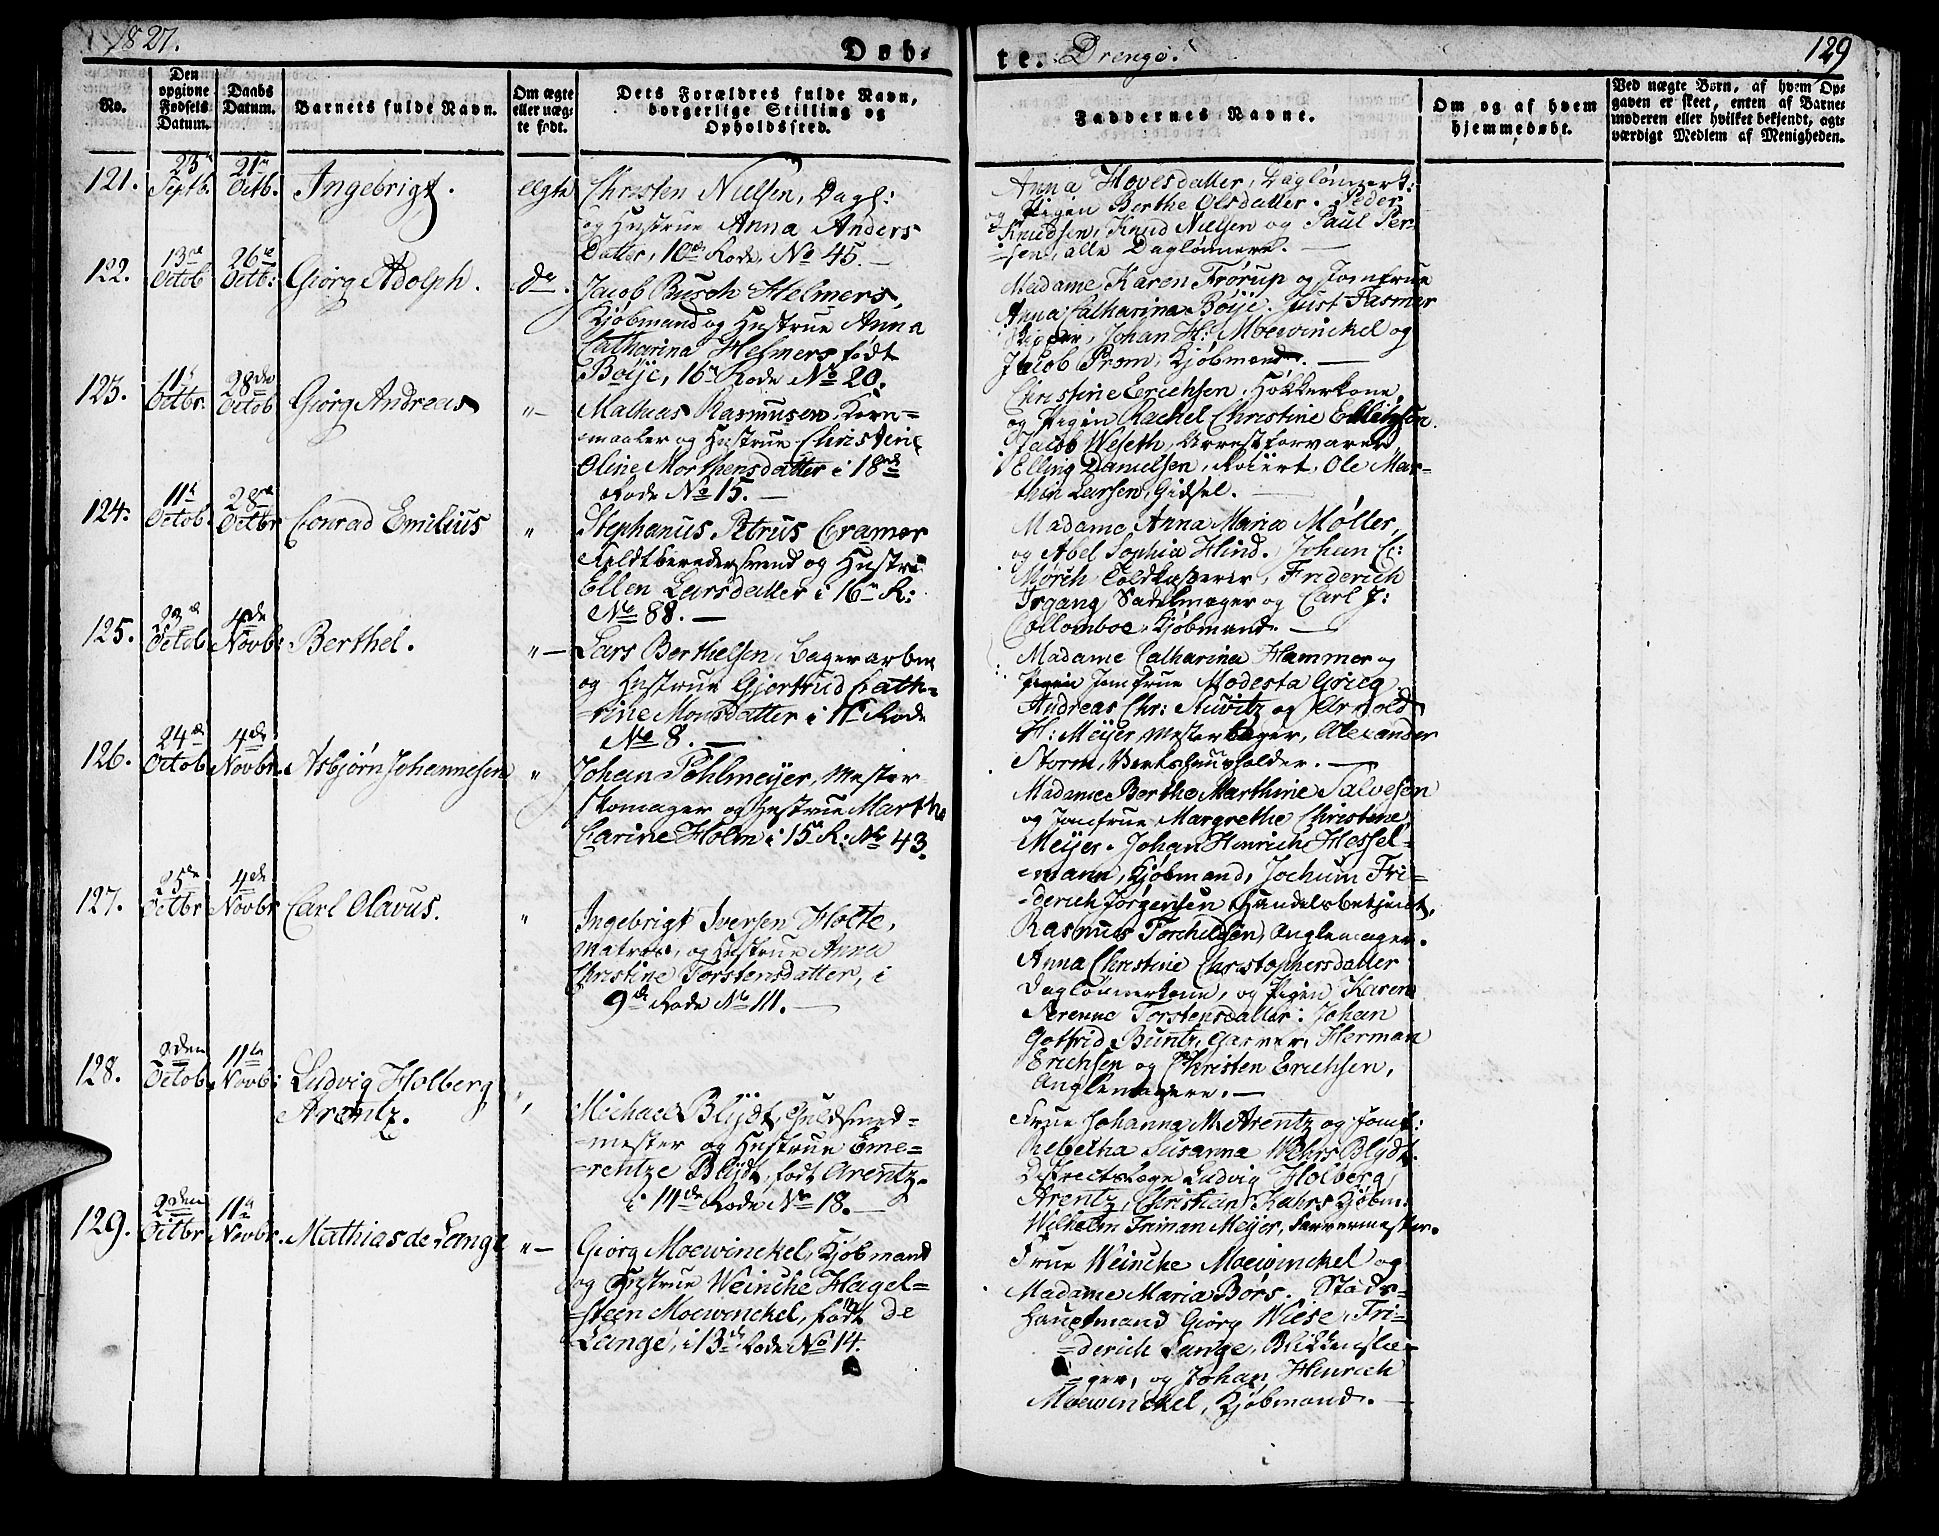 1827.
Døb-
te. Drenge.
129
No.
Den opgivne Fødsels Datum.
Daabs Datum.
Barnets fulde Navn.
Om ægte eller uægte født.
Dets Forældres fulde Navn, borgerlige Stilling og Opholdssted.
Faddernes Navne.
Om og af hvem hjemmedøbt.
Ved uægte Børn, af hvem Op-
gaven er skeet, enten af Barne-
moderen eller hvilket bekjendt, agt-
værdigt Medlem af Menigheden.
121.
Septb.
21
Octb.
Ingebrigt.
ægte
Christen Nielsen, Dagl:
og Hustrue Anna Anders
Datter, 10de Rode, No 45. —
Anna Hovesdatter, Daglønnerk:
og Pigen Berthe Olsdatter. Peder
Knudsen, Knud Nielsen og Paul Per-
sen, alle Daglønnere. —
122.
13
Octob
26
Octb:
Giørg Adolph.
do.
Jacob Busch Helmers,
Kjøbmand og Hustrue Anna
Catharina Helmers født
Bøije, 16 Rode No 20.
Madame Karen Trørup og Jomfrue
Anna Catharina Bøije. Just Fasmer
Skipper, Johan H. Moewinckel og
Jacob Prom, Kjøbmænd. —
123.
11
Octbr.
28de
Octob
Giørg Andreas
"—
Mathias Rasmusen, Korn-
maaler og Hustrue Christine
Oline Morthensdatter i 18de
Rode No 15. —
Christine Erichsen, Høkkerkone,
og Pigen Rachel Christine Ellingsen.
Jacob Weseth, Arrestforvarer
Elling Danielsen, Ole Mar-
thin Larsen, Gidsel. —
124.
11
Octob.
28
Octbr
Conrad Emilius
"
Stephanus Petrus Cramer
Feldtberedersvend og Hustru
Ellen Larsdatter i 16 R:
No 88. —
Madame Anna Maria Møller,
og Abel Sophia Hind. Johan C:
Mørch Toldkasserer, Friderich
Irgang Sadelmager og Carl J:
Collomboe, Kjøbmænd. —
125.
23
Octob.
4de
Novb:
Berthel.
"—
Lars Berthelsen, Bagerarben
og Hustrue Gjertrud Cath-
rine Monsdatter i 11 Rode
No 8. —
Madame Catharina Hammer og
Pigen Jomfrue Modesta Grieg
Andreas Chr: og Arnold
H: Meyer Mesterbager, Alexander
Storm, Vertshuusholder. —
126.
24de
Octob
4de
Novbr.
Asbjørn Johannesen
"
Johan Pohlmeyer, Mester
Skomager og Hustrue Marthe
Carine Holm i 15 R: No 43.
Madame Berthe Marthine Salvesen
og Jomfrue Margrethe Christine
Meijer. Johan Hinrich Hessel-
mann, Kjøbmand, Jochum Fri-
derich Jørgensen Handelsbetjent,
Rasmus Torchildsen, Anglemager.
127.
25de
Octbr
4de
Novbr
Carl Olavus.
"
Ingebrigt Iversen Holte,
Matros, og Hustrue Anna
Christine Torstensdatter, i
9de Rode No 111. —
Anna Christine Christophersdatter
Daglønnerkone, og Pigen Karen
Serenne Torstensdatter: Johan
Gotfrid Buntz, Garver, Herman
Erichsen og Christen Erichsen,
Anglemagere. —
128.
2den
Octob.
11te
Novb:
Ludvig Holberg
Arentz.
"
Michael Blydt, Guldsmed-
mester og Hustrue Eme-
rentze Blydt, født Arentz.
i 14de Rode No 18. —
Frue Johanna M. Arentz og Jomf:
Rebetha Susanna Wehrs Blydt.
Districtslæge Ludvig Holberg
Arentz, Christian Kahrs Kjøbm.
Wilhelm Friman Meyer, Farvermester.
129.
2den
Octbr
11te
Novbr.
Mathias de Lange
"—
Giørg Moewinckel, Kjøbmand
og Hustrue Weinche Hagel-
steen Moewinckel, født de
Lange, i 13de Rode No 14.
Frue Weinche Moewinckel og
Madame Maria Børs. Stads-
hauptmand Giørg Wiese, Fri-
derich Lange, Blikkenslæ-
ger, og Johan Hinrich
Moewinckel, Kjøbmænd. —